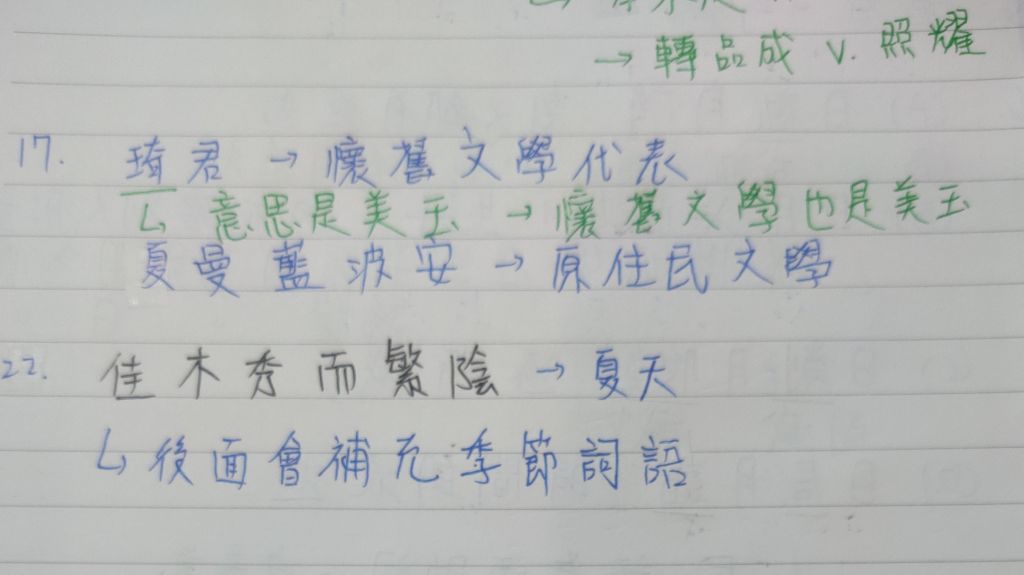 → 轉品成 v. 照耀
17. 琦君 → 懷舊文學代表
↳ 意思是美玉 → 懷舊文學也是美玉
夏曼藍波安 → 原住民文學
22. 佳木秀而繁陰 → 夏天
↳ 後面會補充季節詞語